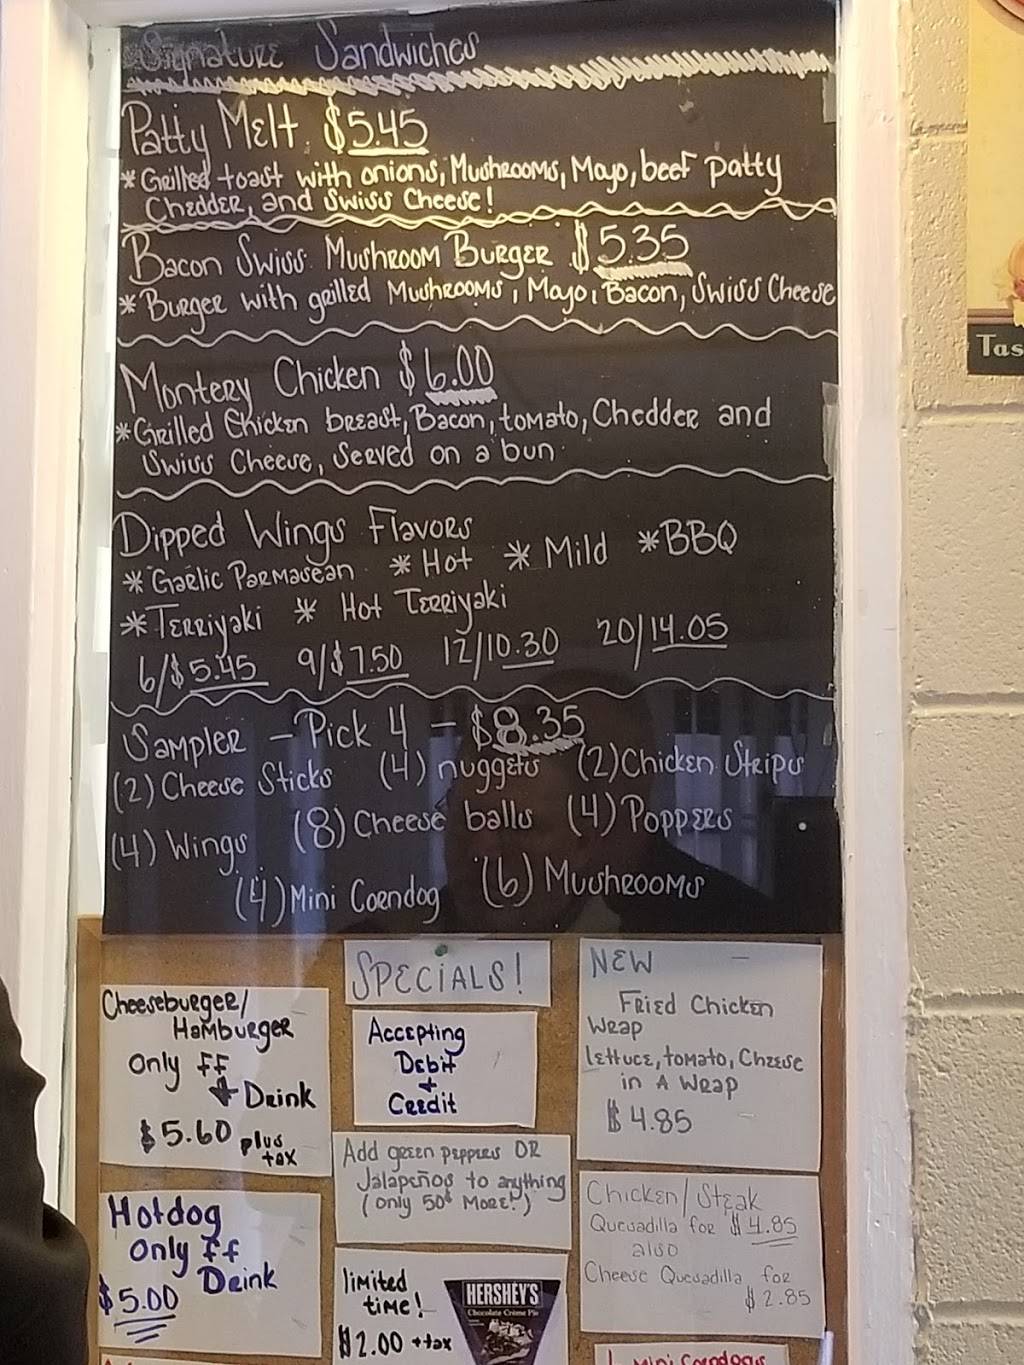 Signature Sandwiches
Patty Melt $5.45
*Grilled toast with onions, Mushrooms, Mayo, beef patty
Chedder, and Swiss Cheese!
Bacon Swiss Mushroom Burger $5.35
*Burger with grilled Mushrooms, Mayo, Bacon, Swiss Cheese
Montery Chicken $6.00
*Grilled Chicken breast, Bacon, tomato, Chedder and
Swiss Cheese, Served on a bun
Dipped Wings Flavors
*Garlic Parmasean *Hot *Mild *BBQ
*Terriyaki *Hot Terriyaki
6/$5.45 9/$7.50 12/10.30 20/14.05
Sampler - Pick 4 - $8.35
(2) Cheese Sticks (4) nuggets (2) Chicken Strips
(4) Wings (8) Cheese balls (4) Poppers
(4) Mini Corndog (6) Mushrooms
Cheeseburger/
Hamburger
Only ff
+ Drink
$5.60 plus
tax
Hotdog
Only ff
Drink
$5.00
SPECiALS!
Accepting
Debit
+
Credit
Add green peppers OR
Jalapeños to anything
(only 50¢ More!)
limited
time!
$2.00 +tax
HERSHEY'S
Chocolate Crème Pie
NEW
Fried Chicken
Wrap
lettuce, tomato, Cheese
in A Wrap
$4.85
Chicken/Steak
Quesadilla for $4.85
also
Cheese Quesadilla for
$2.85
Mini Corndogs
Tas